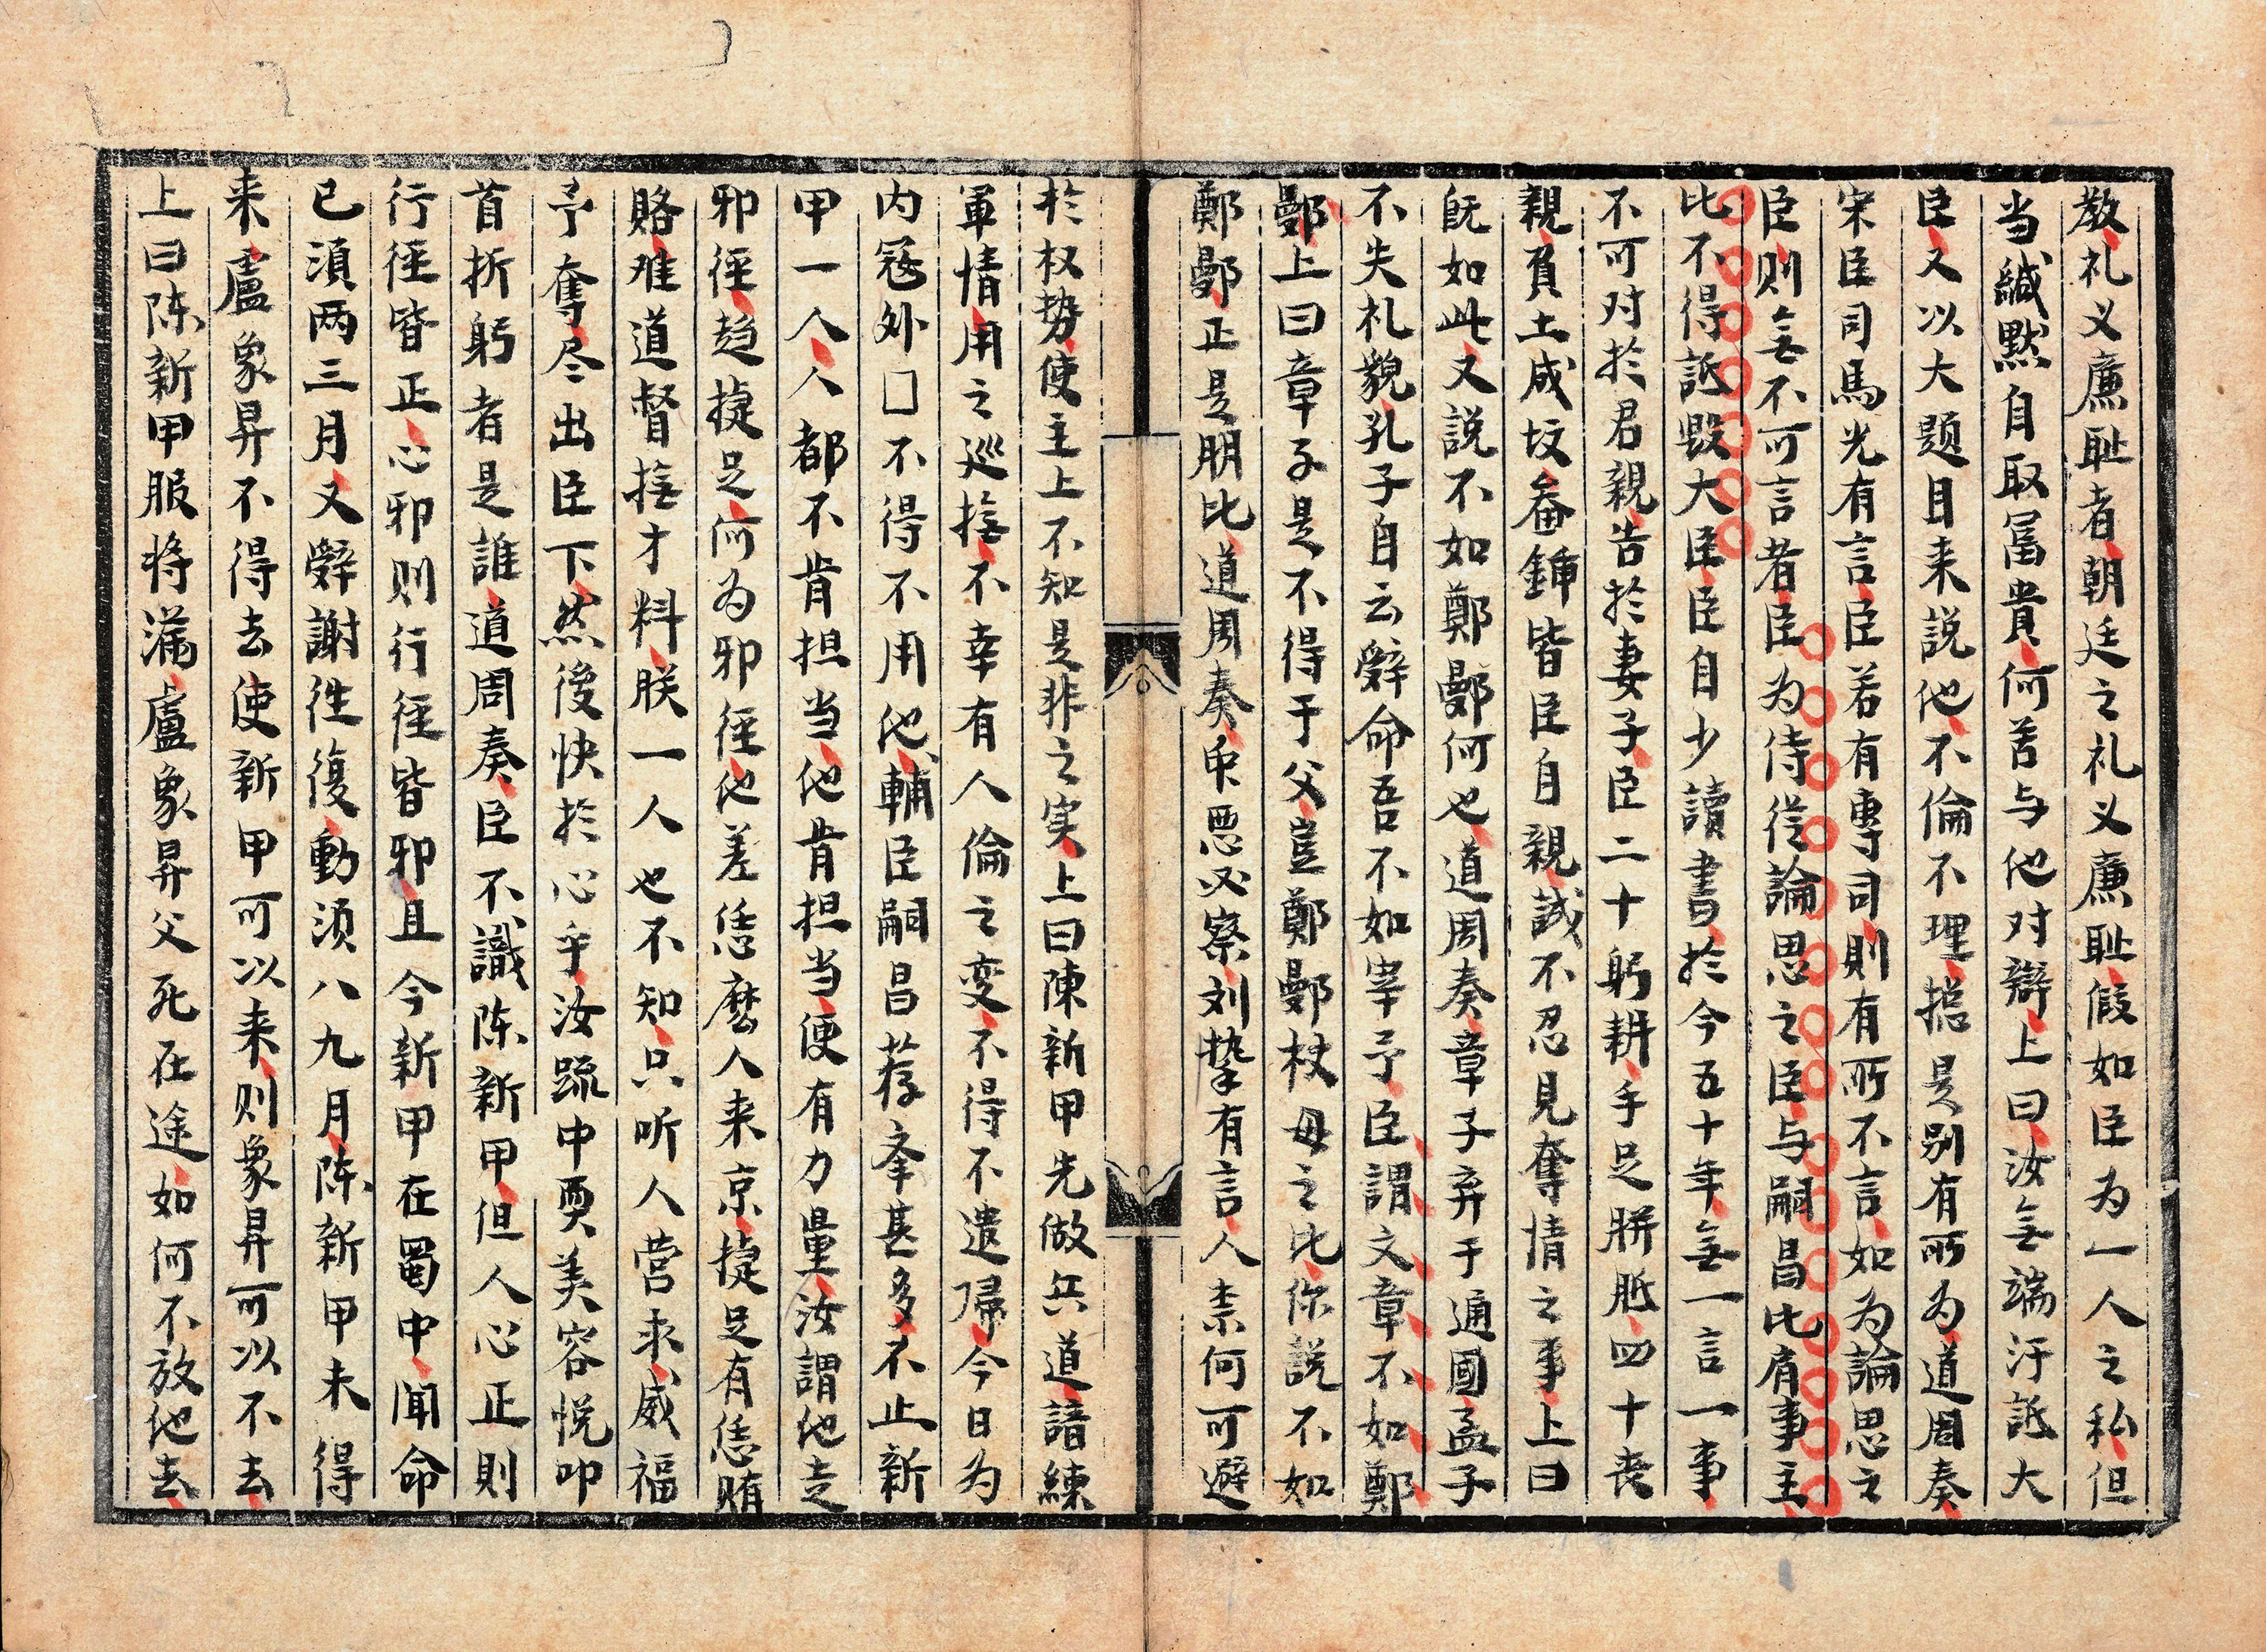 教礼义廉耻者朝廷之礼义廉耻假如臣为一人之私但
当缄默自取富貴何苦与他对辯上曰汝无端汙詆大
臣又以大题目来説他不倫不理摠是别有所为道周奏
宋臣司馬光有言臣若有專司則有所不言如为論思之
臣则无不可言者臣为侍從論思之臣与嗣昌比肩事主
比不得詆毀大臣臣自少讀書於今五十年无一言一事
不可对於君親告於妻子臣二十躬耕手足胼胝四十丧
親負土成坟畚鍤皆臣自親誠不忍見奪情之事上曰
既如此又説不如鄭鄤何也道周奏章子弃于通國孟子
不失礼貌孔子自云辭命吾不如宰予臣謂文章不如鄭
鄤上曰章子是不得于父豈鄭鄤杖母之比你説不如
鄭鄤正是朋比道周奏衆惡必察刘摯有言人素何可避
於权势使主上不知是非之实上曰陳新甲先做兵道諳練
軍情用之巡撫不幸有人倫之变不得不遣歸今日为
内冦外□不得不用他輔臣嗣昌荐奉甚多不止新
甲一人人都不肯担当他肯担当便有力量汝謂他走
邪徑趋捷足何为邪徑他差恁麽人来京捷足有恁賄
賂难道督撫才料朕一人也不知只听人营求威福
予奪尽出臣下然後快於心乎汝䟽中耎美容悦叩
首折躬者是誰道周奏臣不識陈新甲但人心正則
行徑皆正心邪则行徑皆邪且今新甲在蜀中闻命
已湏两三月又辭謝徃復動湏八九月陈新甲未得
来盧象昇不得去使新甲可以来则象昇可以不去
上曰陈新甲服将滿盧象昇父死在途如何不放他去